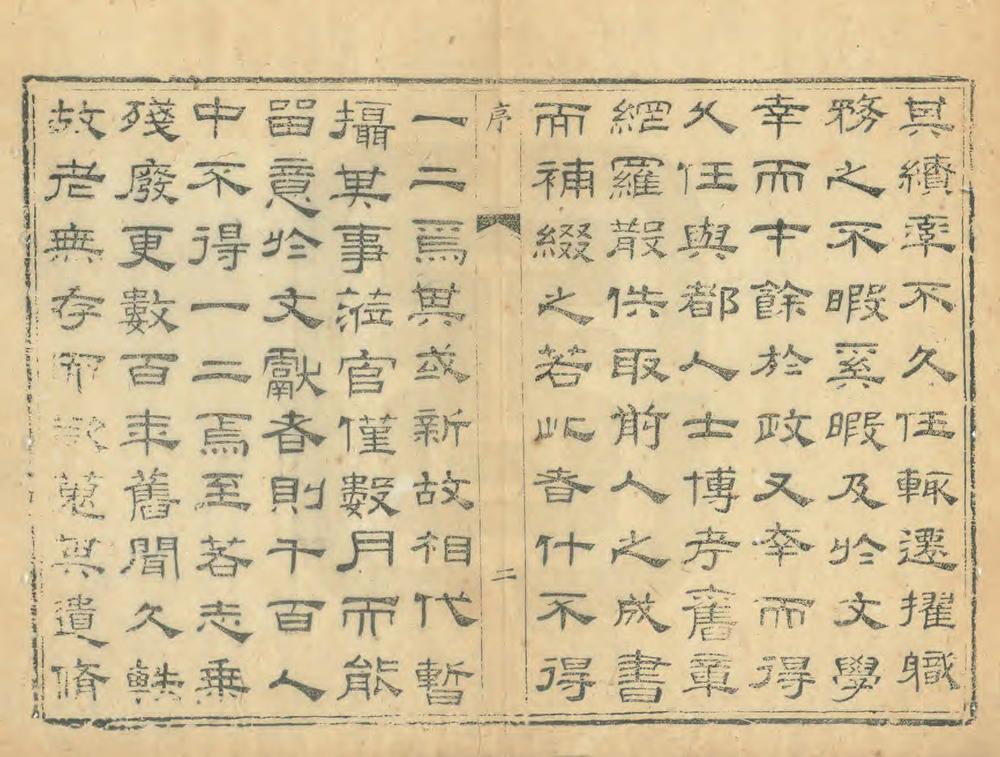 其續率不久任輒遷擢職
務之不暇奚暇及於文學
幸而才餘於政又幸而得
久任與都人士博考舊章
網羅散佚取前人之成書
而補綴之若此者什不得
序
二
一二焉其或新故相代暫
攝其事蒞官僅數月而能
留意於文獻者則千百人
中不得一二焉至若志乘
殘廢更數百年舊聞久軼
故老無存即欲蒐其遺脩